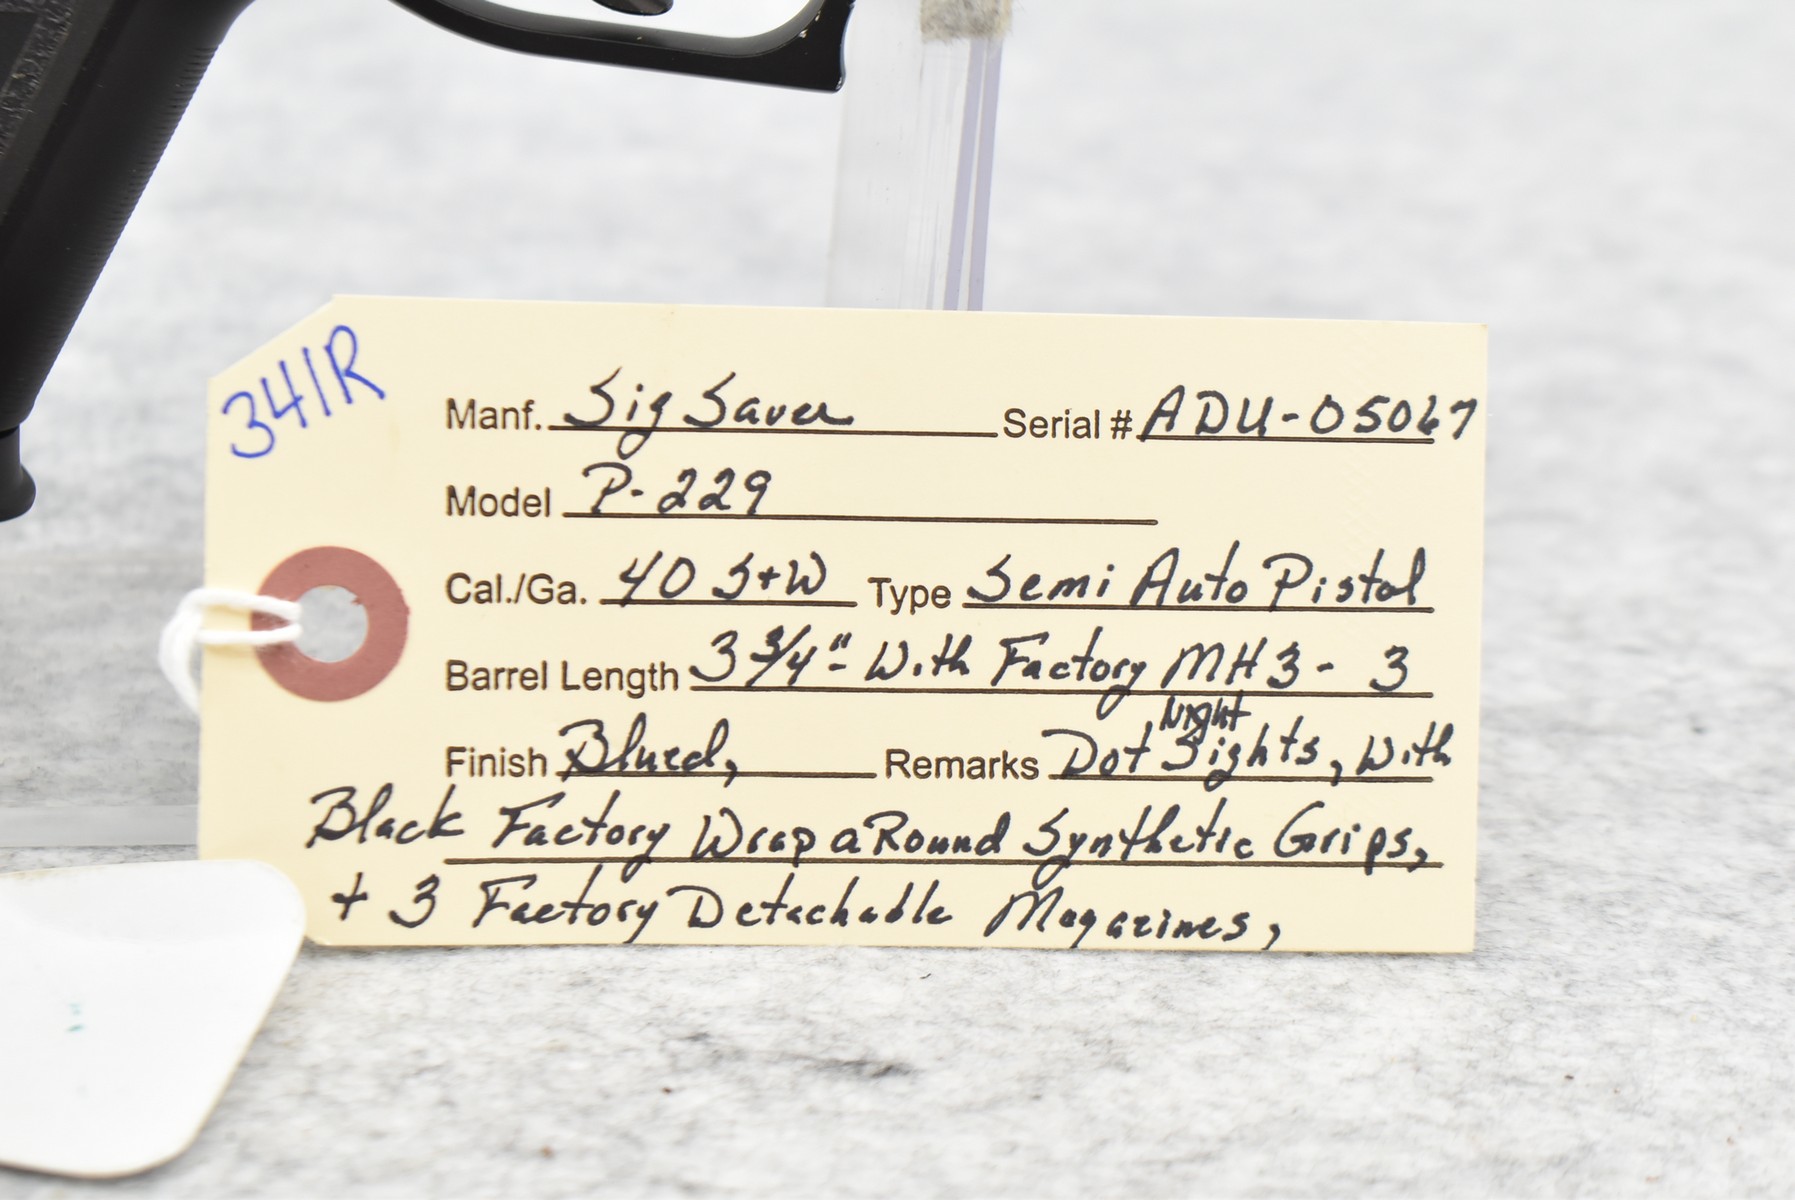 341R
Manf. Sig Sauer Serial # ADU-05067
Model P-229
Cal./Ga. 40 S+W Type Semi Auto Pistol
Barrel Length 3 3/4" - With Factory MH3 - 3
Finish Blued, Remarks Dot Night Sights, With
Black Factory Wrap aRound Synthetic Grips,
+ 3 Factory Detachable Magazines,